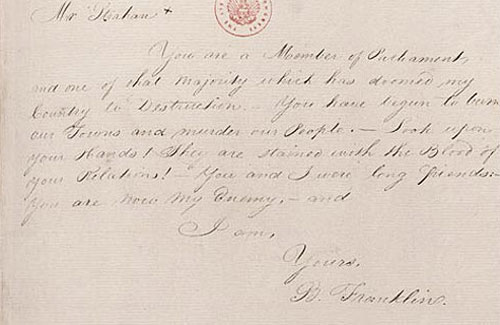 Mr Strahan +
You are a Member of Parliament,
and one of that Majority which has doomed my
Country to Destruction. – You have begun to burn
our Towns and murder our People. – Look upon
your Hands! They are stained with the Blood of
your Relations! – You and I were long friends: –
You are now my Enemy, – and
I am,
Yours,
B. Franklin.